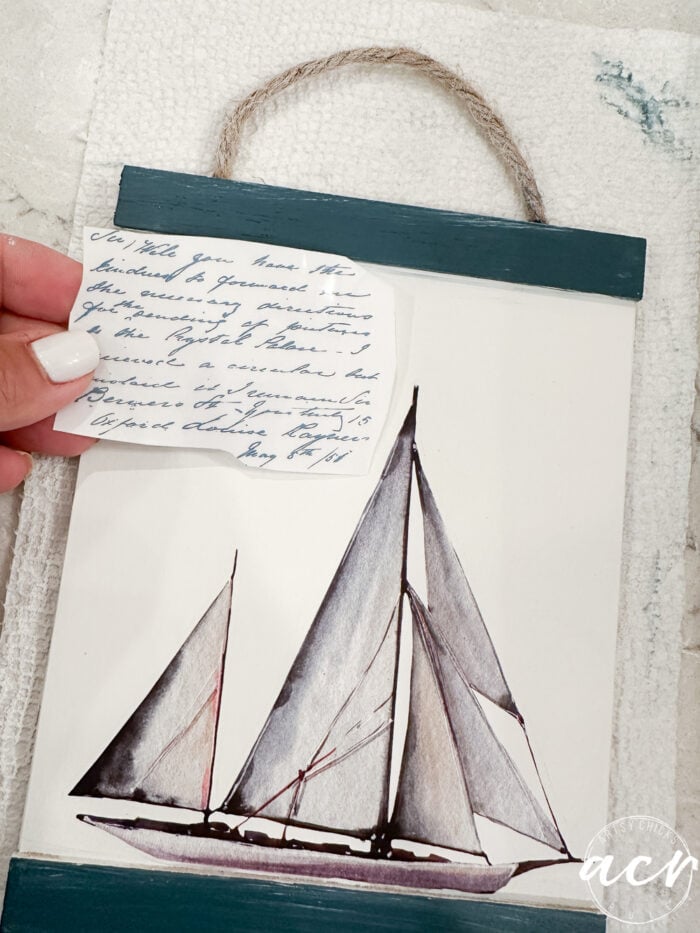 Sir, Will you have the
kindness to forward me
the necessary directions
for the sending of pictures
to the Crystal Palace - I
received a circular but
mislaid it I remain Sir
Berners St yours truly 15
Oxford Louise Rayner
May 8th /51
ARTSY CHICKS
acr
RULE